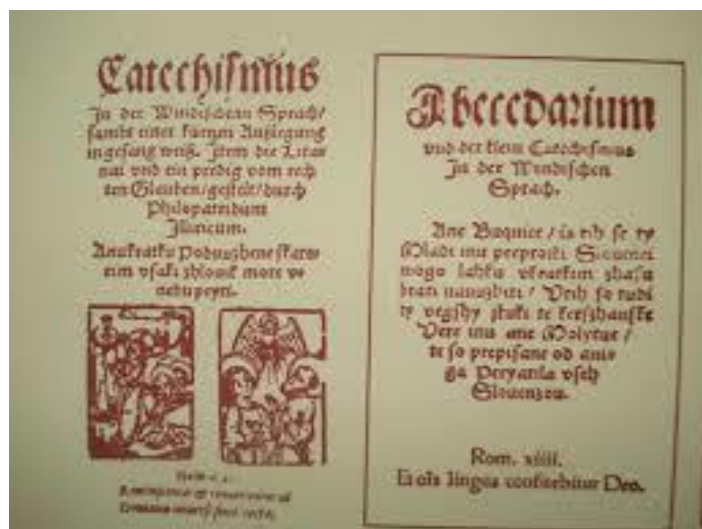 Catechismus
In der Windischenn Sprach/
sambt einer kürtzen Auslegung
in gesang weiß. Item die Lita-
nai vnd ein predig vom rech
ten Glauben/gestelt/durch
Philopatridum
Illiricum.
Anukratku Poduuzhene skaterim
vsaki zhlouik more vnebu
pryti.
Abecedarium
vnd der klein Catechismus
In der Windischen
Sprach.
Ane Buquice / is tih se ty
Mladi inu preprosti Slouenci
mogo lahku vkratkim zhasu
brati nauuzhiti / Vtih so tudi
ty vegshy stuki te kerszhanske
Vere inu ane Molytue /
te so prepisane od aniga
Peryatila vseh
Slouenzou.
Rom. xiiii.
Et oīs lingua confitebitur Deo.